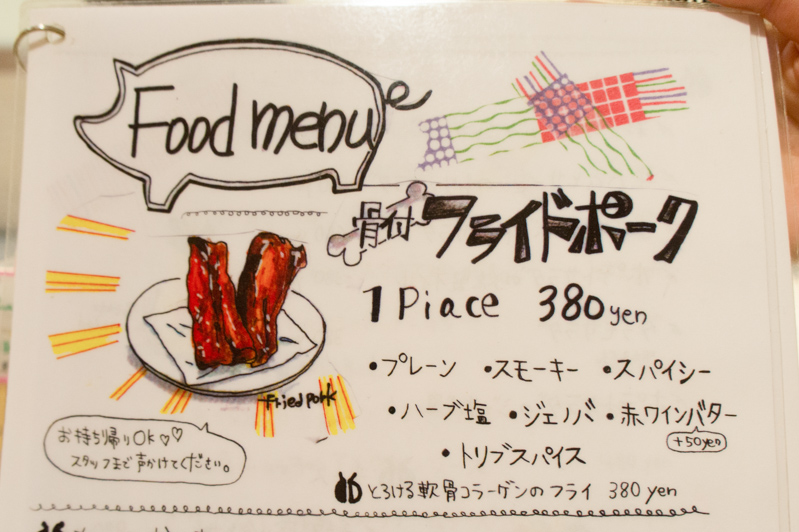 Food menu
骨付フライドポーク
1 Piace 380yen
・プレーン ・スモーキー ・スパイシー
・ハーブ塩 ・ジェノバ ・赤ワインバター
+50yen
・トリプスパイス
Fried pork
お持ち帰りOK♡♡
スタッフまで声かけてください。
とろける軟骨コラーゲンのフライ 380 yen